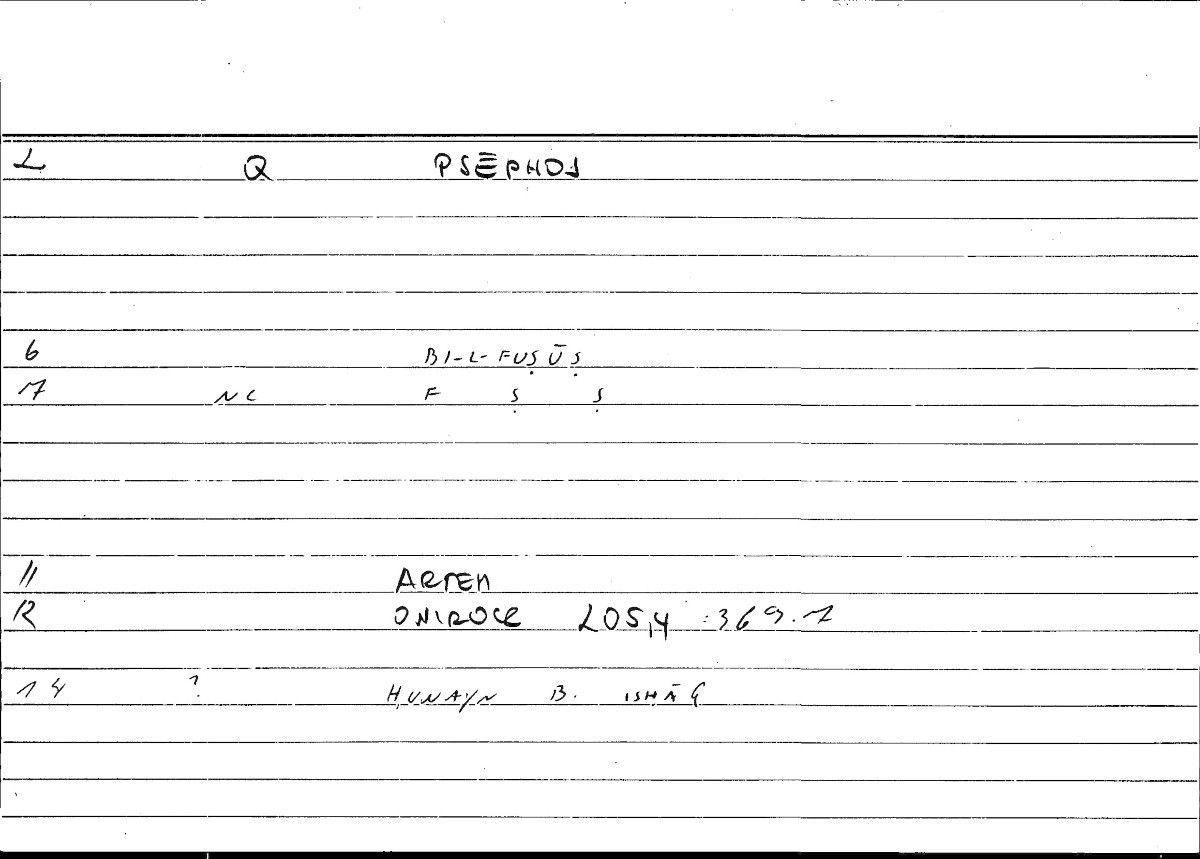 2 Q PSĒPHOS
6 BI-L-FUṢŪṢ
7 NC F Ṣ Ṣ
11 ARTEM
12 ONIROCR 205,4 :369.7
14 ? ḤUNAYN B. ISḤĀQ